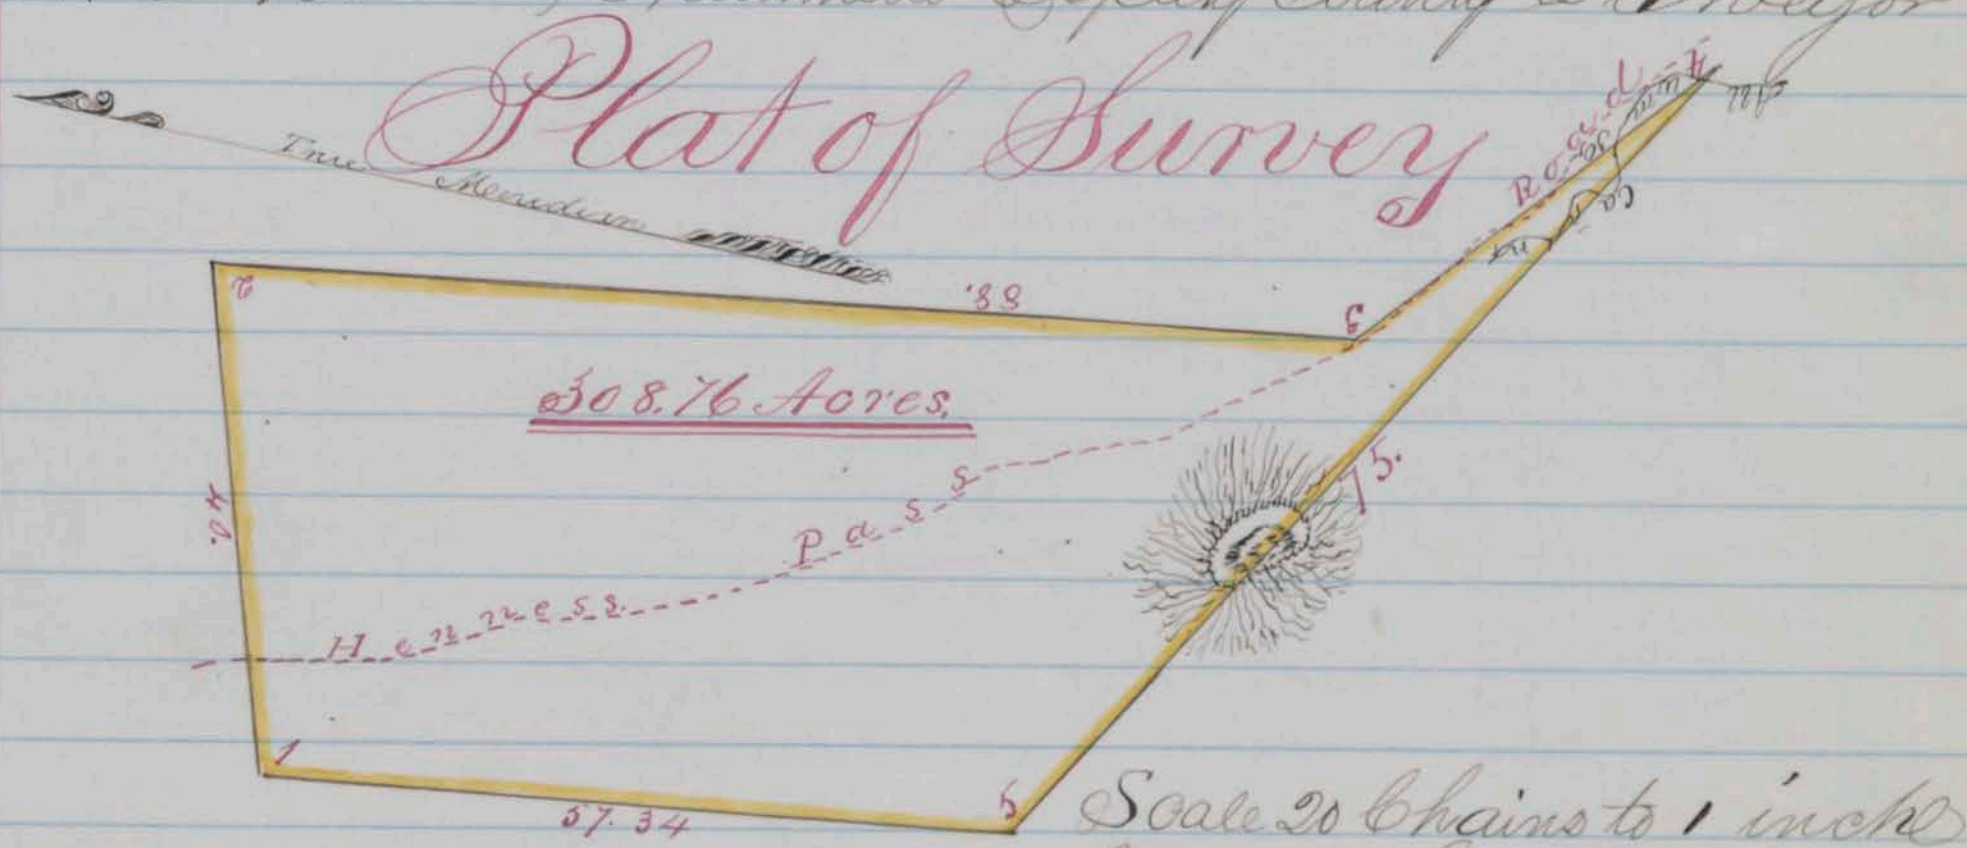 Deputy County Surveyor
Plat of Survey
True Meridian
2
88.
3
4
Road
308.76 Acres.
40.
75.
Henness Pass
1
57.34
5
Scale 20 Chains to 1 inch